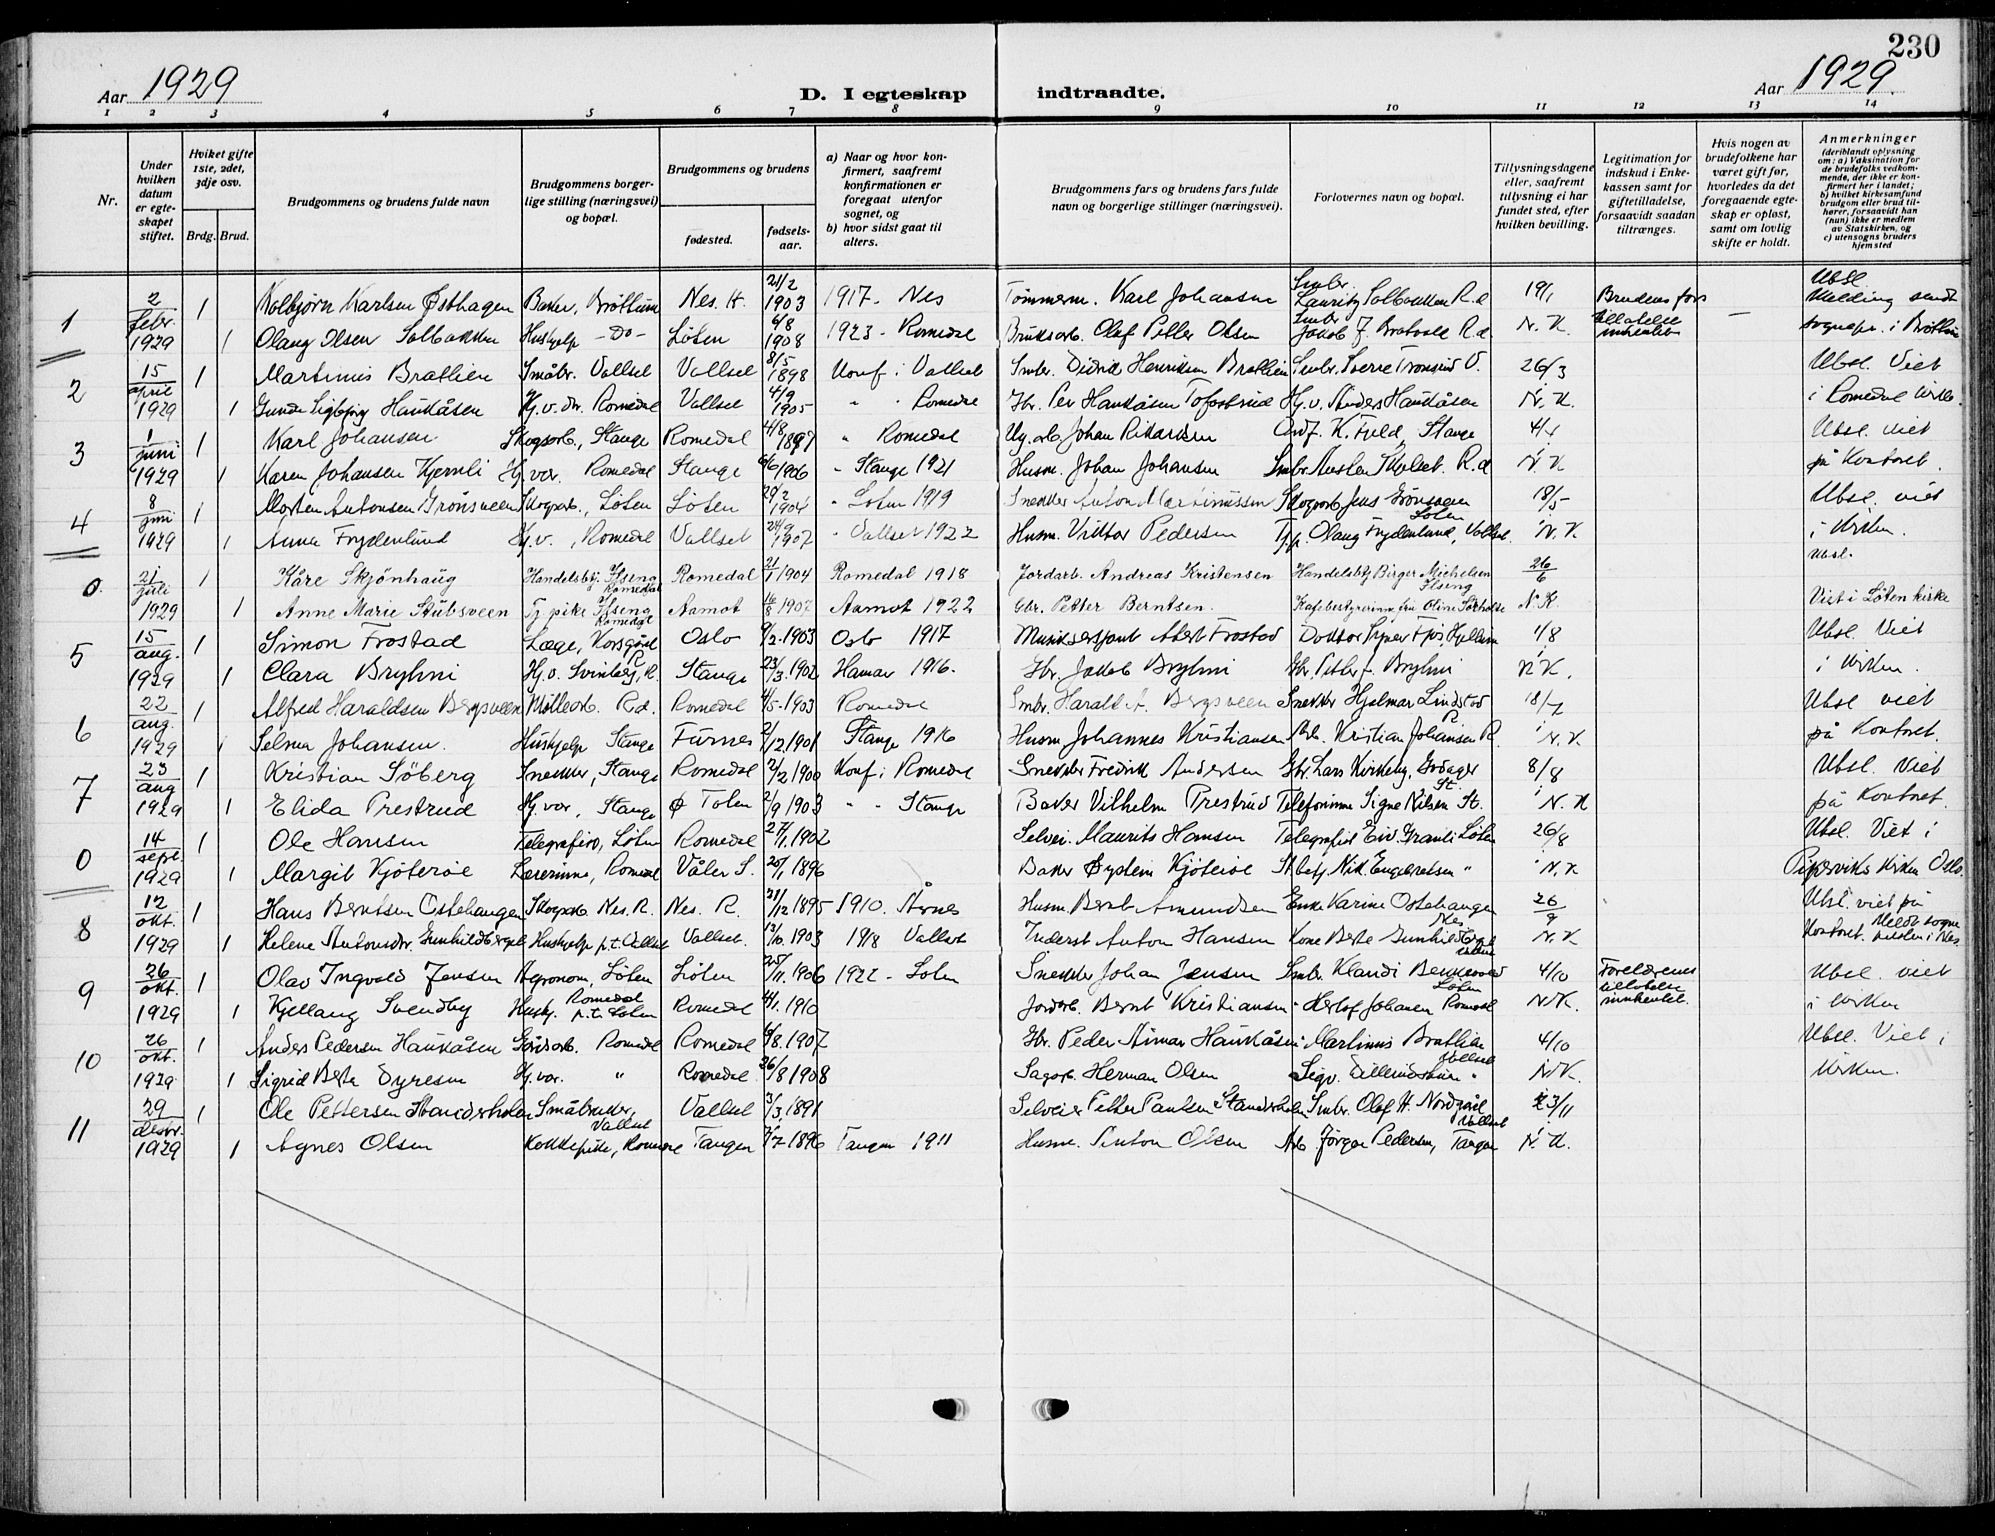 230
Aar 1929 D. I egteskap indtraadte. Aar 1929
1 2 3 4 5 6 7 8 9 10 11 12 13 14
Nr.
Under hvilken datum er egteskapet stiftet.
Hviket gifte 1ste, 2det, 3dje osv.
Brdg. Brud.
Brudgommens og brudens fulde navn
Brudgommens borgerlige stilling (næringsvei) og bopæl.
Brudgommens og brudens
fødested. fødselsaar.
a) Naar og hvor konfirmert, saafremt konfirmationen er foregaat utenfor sognet, og
b) hvor sidst gaat til alters.
Brudgommens fars og brudens fars fulde navn og borgerlige stillinger (næringsvei).
Forlovernes navn og bopæl.
Tillysningsdagene eller, saafremt tillysning ei har fundet sted, efter hvilken bevilling.
Legitimation for indskud i Enkekassen samt for giftetilladelse, forsaavidt saadan tiltrænges.
Hvis nogen av brudefolkene har været gift før, hvorledes da det foregaaende egteskap er opløst, samt om lovlig skifte er holdt.
Anmerkninger (deriblandt oplysning om: a) Vaksination for de brudefolks vedkommende, der ikke er konfirmert her i landet; b) hvilket kirkesamfund brudgom eller brud tilhører, forsaavidt han (hun) ikke er medlem av Statskirken, og c) utensogns bruders hjemsted
1 2/febr. 1929 1 Kolbjørn Karlsen Østhagen Baker, Brøttum Nes. H. 21/2 1903 1917 - Nes Tømmerm. Karl Johansen Smbr. Lauritz Solbakken R.d. 19/1 Brudens fars Ubsl. Melding sendt
1 Olaug Olsen Solbakken Hushjelp - Do - Løten 6/8 1908 1923 - Romedal Bruksarb. Olaf Petter Olsen Smbr Jakob J. R.d. N.K. tillatelse innhentet - sognepr. i Brøttum
2 15/april 1929 1 Martinus Bratlien Småbr. Vallset Vallset 8/5 1898 Konf i Vallset Smbr. Didrik Henriksen Bratlien Smbr. Sverre Tronsrud V. 26/3 Ubsl. Viet
1 Gunda Sigbjørg Haukåsen Hj.v. dtr. Romedal Vallset 4/9 1905 " " Romedal Gbr. Per Haukåsen Tofastrud Hj.v. Anders Haukåsen N.K. i Romedal kirke.
3 1/juni 1929 1 Karl Johansen Skogsarb., Stange Romedal 4/8 1897 " Romedal Ug.arb. Johan Rikardsen K. Fjeld, Stange 4/4 Ubsl. viet
1 Karen Johansen Kjernli Hj.vær. Romedal Stange 6/6 1906 " Stange 1921 Husm. Johan Johansen Smbr. R.d. N.K på kontoret.
4 8/juni 1929 1 Morten Antonsen Grønsveen Skogsarb., Løten Løten 29/2 1904 " Løten 1919 Snekker Anton Martinussen Skogsarb. Jens Grønsveen Løten 18/5 Ubsl. viet
1 Anna Frydenlund Hj.v., Romedal Vallset 24/9 1907 " Vallset 1922 Husm. Viktor Pedersen Tj.p. Olaug Frydenlund, Vallset. N.K. i kirken.
0. 21/juli 1929 1 Kåre Skjønhaug Handelsbtj. Ilseng Romedal Romedal 21/1 1904 Romedal 1918 Jordarb. Andreas Kristensen Handelsbtj Birger Michelsen Ilseng 26/6 Ubsl.
1 Anne Marie Stubsveen Tj.pike Ilseng Romedal Aamot 16/8 1907 Aamot 1922 Gbr. Petter Berntsen. Kafebestyrerinne fru Oline N.K. Viet i Løten kirke
5 15/aug. 1929 1 Simon Frostad Læge, Korsgård R Oslo 9/2. 1903 Oslo 1917 Musikkersjant Frostad Doktor Hjellum 1/8 Ubsl. Viet
1 Clara Bryhni Hj.v. Svinberg, R. Stange 23/3. 1902 Hamar 1916. Gbr. Jakob Bryhni Gbr. Bryhni N.K. i kirken.
6 22/aug. 1929 1 Alfred Haraldsen Bergsveen Møllearb. R.d. Romedal 4/5. 1903 Romedal Smbr. Harald A. Bergsveen Snekker Hjelmar Lindstad 18/7 Ubsl viet
1 Selma Johansen. Hushjelp Stange Furnes 2/12 1901 Stange 1916 Husm Johannes Kristiansen Arb. Kristian Johansen R. N.K. på kontoret.
7 23/aug 1929 1 Kristian Söberg Snekker, Stange Romedal 2/2 1900 Konf i Romedal Snekker Fredrik Andersen Gbr. Lars Kirkeby, Godager St. 8/8 Ubsl. Viet
1 Elida Prestrud Hj.vær, Stange Ø Toten 2/9 1903 " " Stange Baker Vilhelm Prestrud Telefoninne Signe Nilsen St. N.K på kontoret.
0 14/sept. 1929 1 Ole Hansen Telegrafass, Løten Romedal 27/1 1902 Selvei. Maurits Hansen Telegrafist Eiv. Løten 26/8 Ubsl. Viet i
1 Margit Kjöteröe Lærerinne, Romedal Våler S. 20/1 1896 Baker Øystein Kjöteröe St.betj. Nik. Engebretsen " N.K Pipervika kirken Oslo.
8 12/okt. 1929 1 Hans Berntsen Ostehangen Skogsarb. Nes. R. Nes. R. 28/12 1895 1910. Årnes Husm. Bernt Amundsen Enke Karine Ostehangen Nes 26/9 Ubsl. viet på
1 Helene Antonsdtr. Gunhildberget Hushjelp p.t. Vallset Vallset. 13/10. 1903 1918 Vallset Inderst Anton Hansen Kone Berte Gunhildberget Vallset N.K Kontoret. Meldt sognepresten i Nes
9 26/okt. 1929 1 Olav Ingvald Jensen Agronom, Løten Løten 25/11. 1906 1922 - Løten Snekker Johan Jensen Smbr. Klaudi Løten 4/10 Foreldrenes Ubsl. viet
1 Kjellaug Svendby Hushj. Romedal p.t. Løten Romedal 4/1. 1910 Jordarb. Bernt Kristiansen " Herlof Johansen Romedal N.K. tillatelse innhentet. i kirken
10 26/okt. 1929 1 Anders Pedersen Haukåsen Gårdsarb. Romedal Romedal 6/8. 1907 Gbr. Peder Aimar Haukåsen " Martinus Bratlien Vallset 4/10 Ubsl. Viet i
1 Sigrid Berte Dyresen Hj.vær. " Romedal 26/8 1908 Sagarb. Herman Olsen Sigv. " N.K. kirken.
11 29/desbr. 1929 1 Ole Pettersen Standerholen Småbruker, Vallset Vallset 3/3 1891 Selveier Petter Paulsen Standerholen Smbr. Olaf H. Nordgård Vallset 23/11
1 Agnes Olsen Kokkepike, Romedal Tangen 7/7 1896 Tangen 1911 Husm. Anton Olsen Arb Jørgen Pedersen, Tangen N.K.